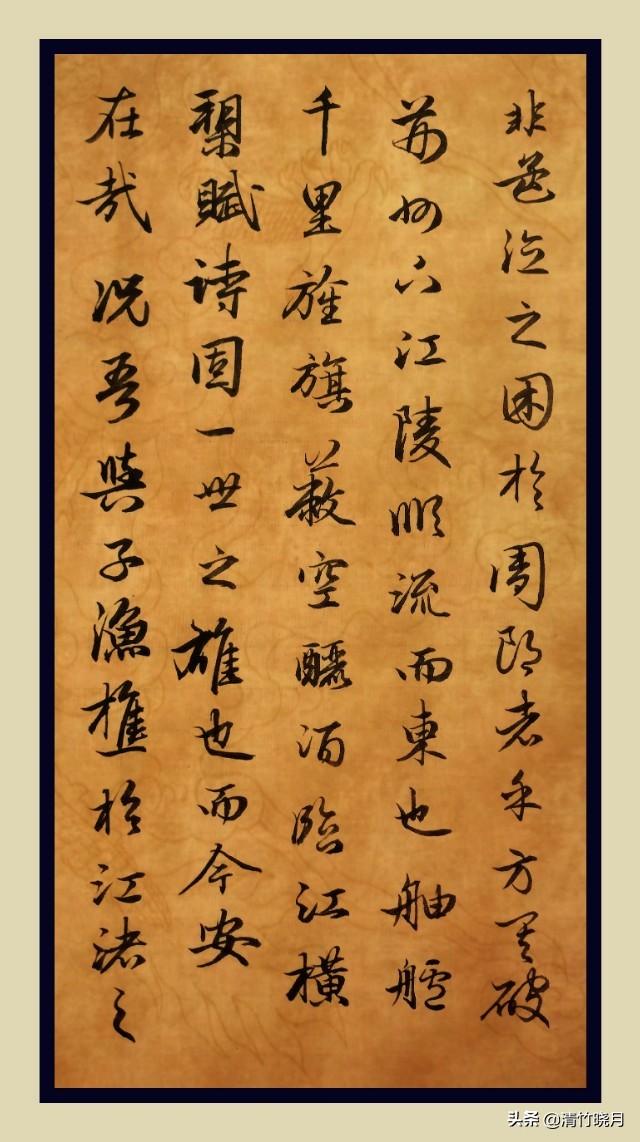 非孟德之困於周郎者乎方其破
荊州下江陵順流而東也舳艫
千里旌旗蔽空釃酒臨江橫
槊賦詩固一世之雄也而今安
在哉况吾與子漁樵於江渚之
头条 @清竹晓月